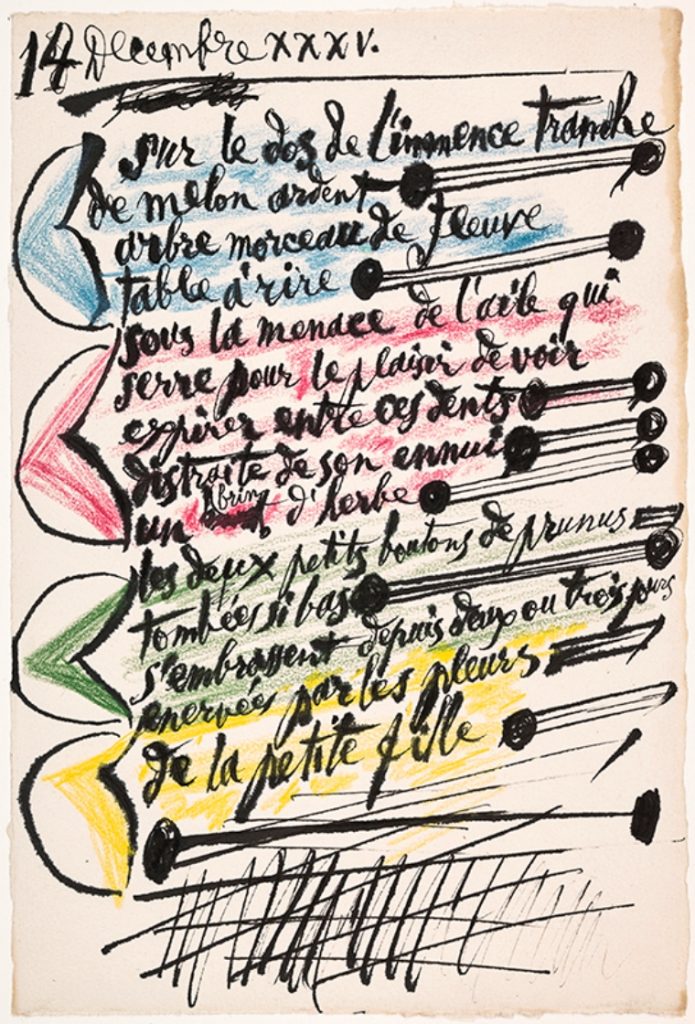 14 Decembre XXXV.
sur le dos de l'immence tranche
de melon ardent
arbre morceau de fleuve
table à rire
sous la menace de l'aile qui
serre pour le plaisir de voir
expirer entre ces dents
distraite de son ennui
un brin d'herbe
les deux petits boutons de prunus
tombées si bas
s'embrassent depuis deux ou trois jours
enervées par les pleurs
de la petite fille